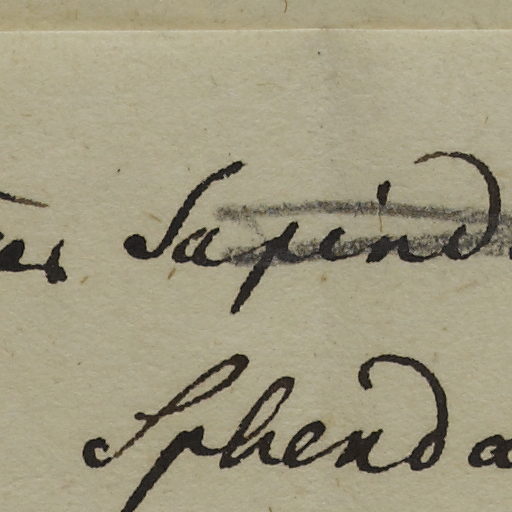 Sapind
Sphenda